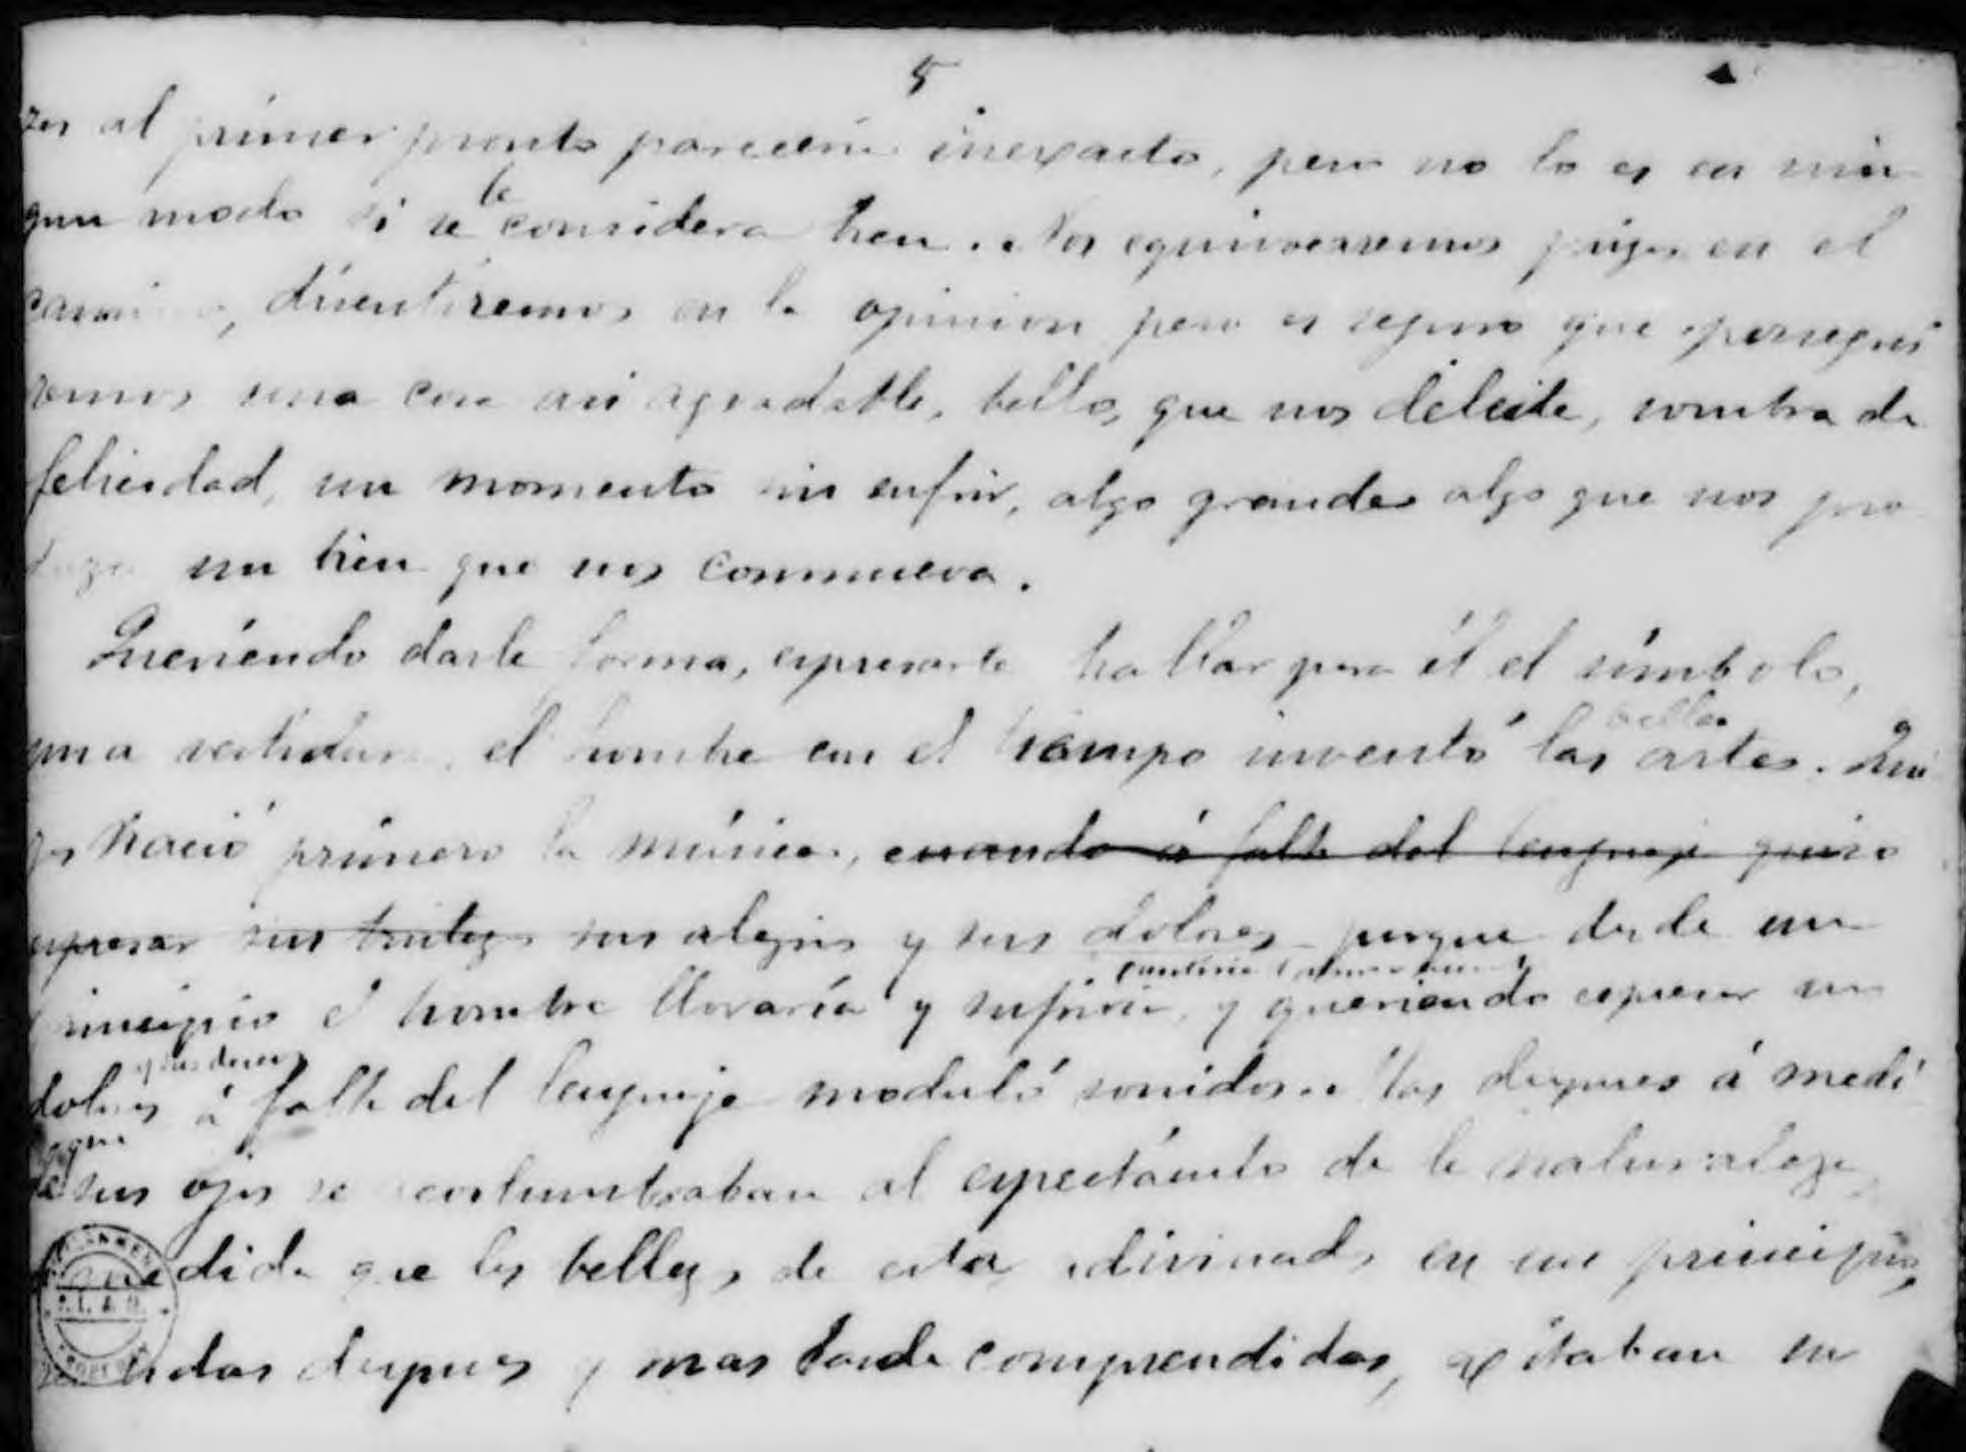 5
zas al primer pronto parecería inexacto, pero no lo es en nin
gun modo si se le considera bien. Nos equivocaremos quizas en el
camino, disentiremos en la opinion pero es seguro que persegui
remos una cosa asi agradable, bella, que nos deleite, sombra de
felicidad, un momento sin sufrir, algo grande algo que nos pro
duzca un bien que nos conmueva.
Queriendo darle forma, espresarlo hallar para él el símbolo,
una vestidura, el hombre con el tiempo inventó las bellas artes. Qui
zas nació primero la música, cuando á falta del lenguaje quiso
espresar sus tristezas sus alegrias y sus dolores porque desde un
principio el hombre lloraría y sufriria, y queriendo espresar sus
dolores y sus deseos á falta del lenguaje moduló sonidos. Mas despues á medi
da que sus ojos se acostumbraban al espectáculo de la naturaleza,
á medida que las bellezas de esta adivinadas en un principio,
sentidas despues y mas tarde comprendidas, excitaban su